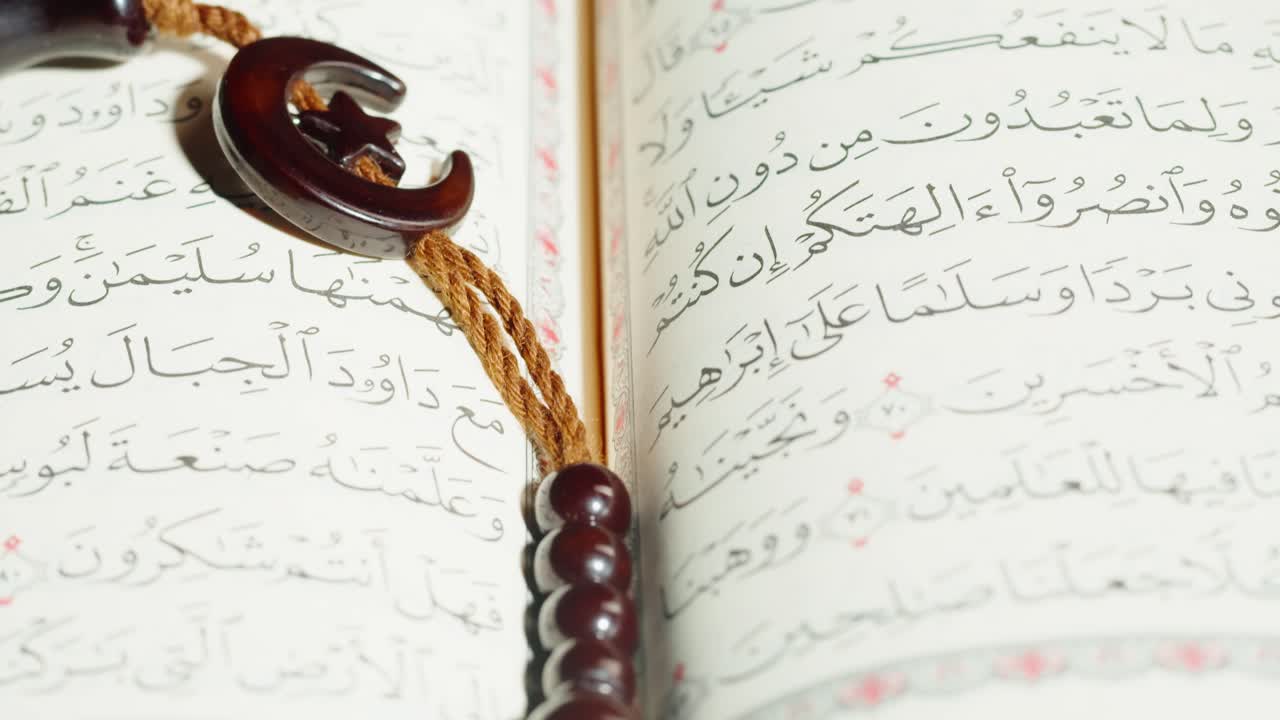 قَالَ
مَا لَا يَنفَعُكُمْ شَيْـًٔا وَلَا
وَلِمَا تَعْبُدُونَ مِن دُونِ ٱللَّهِ
وَٱنصُرُوٓا۟ ءَالِهَتَكُمْ إِن كُنتُمْ
ـونِى بَرْدًا وَسَلَـٰمًا عَلَىٰٓ إِبْرَٰهِيمَ
ٱلْأَخْسَرِينَ ٧٠ وَنَجَّيْنَـٰهُ
ـنَا فِيهَا لِلْعَـٰلَمِينَ ٧١ وَوَهَبْنَا
جَعَلْنَا صَـٰلِحِينَ
وَدَاوُۥدَ
غَنَمُ
ـهَّمْنَـٰهَا سُلَيْمَـٰنَ ۚ
مَعَ دَاوُۥدَ ٱلْجِبَالَ
وَعَلَّمْنَـٰهُ صَنْعَةَ لَبُوسٍ
فَهَلْ أَنتُمْ شَـٰكِرُونَ
ٱلْأَرْضِ ٱلَّتِى